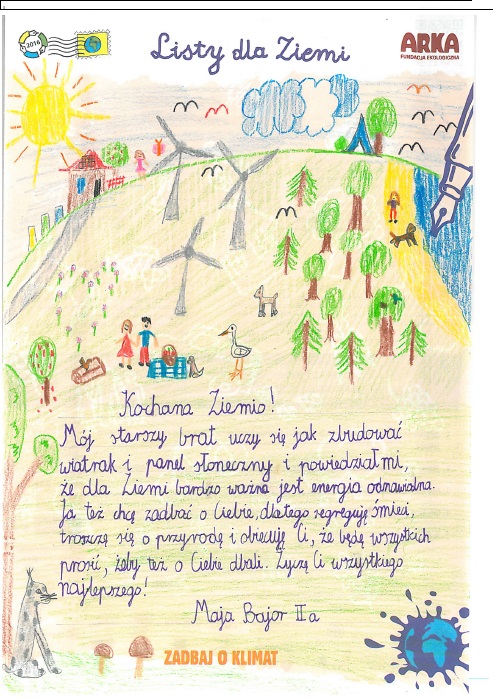 2016
Listy dla Ziemi
ARKA
FUNDACJA EKOLOGICZNA
Kochana Ziemio!
Mój starszy brat uczy się jak zbudować
wiatrak i panel słoneczny i powiedział mi,
że dla Ziemi bardzo ważna jest energia odnawialna.
Ja też chcę zadbać o Ciebie, dlatego segreguję śmieci,
troszczę się o przyrodę i obiecuję Ci, że będę wszystkich
prosić, żeby też o Ciebie dbali. Życzę Ci wszystkiego
najlepszego!
Maja Bajor II a
ZADBAJ O KLIMAT